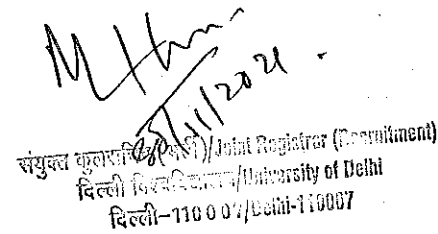 /11/2021
संयुक्त /Joint Registrar (Recruitment)
दिल्ली विश्वविद्यालय/University of Delhi
दिल्ली-110007/Delhi-110007